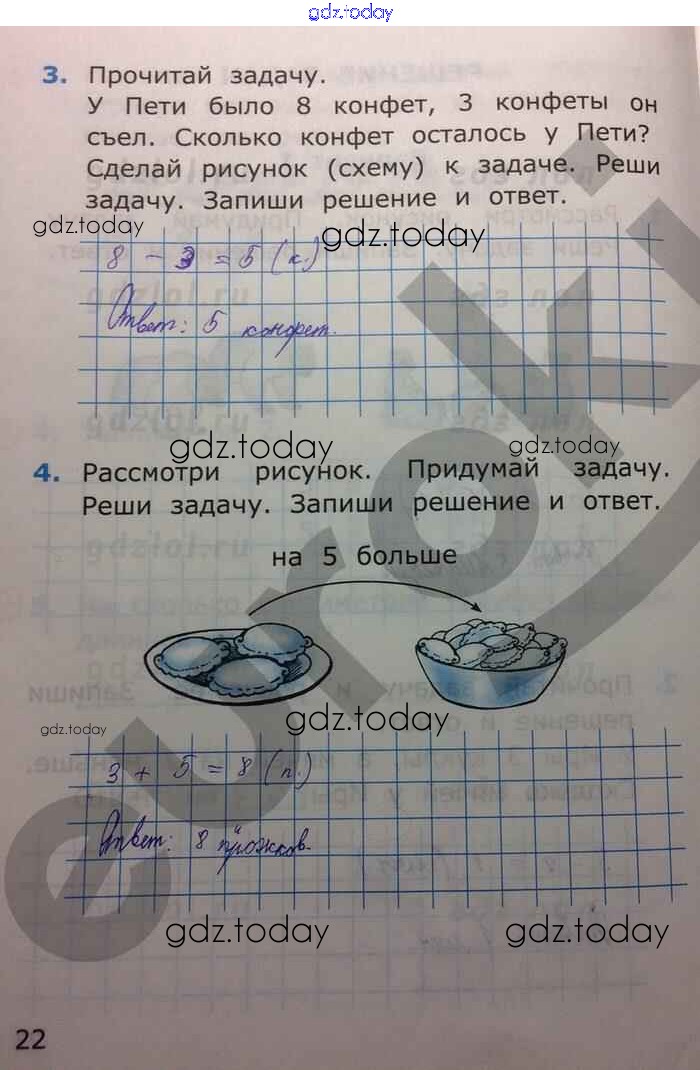 gdz.today
3. Прочитай задачу.
У Пети было 8 конфет, 3 конфеты он
съел. Сколько конфет осталось у Пети?
Сделай рисунок (схему) к задаче. Реши
задачу. Запиши решение и ответ.
gdz.today
gdz.today
8 - 3 = 5 (к.)
Ответ: 5 конфет.
gdz.today
gdz.today
4. Рассмотри рисунок. Придумай задачу.
Реши задачу. Запиши решение и ответ.
на 5 больше
gdz.today
gdz.today
3 + 5 = 8 (п.)
Ответ: 8 пирожков.
gdz.today
gdz.today
euroki
22